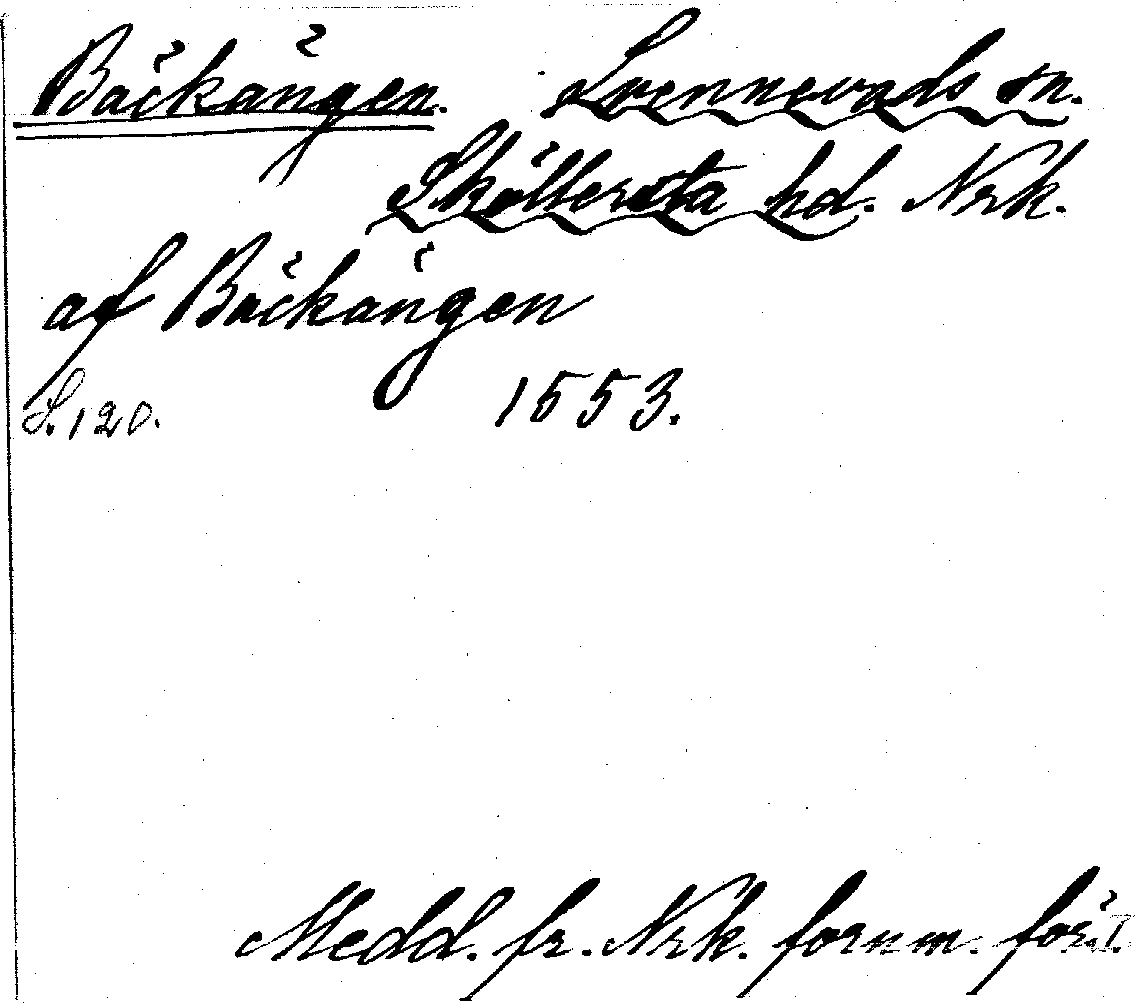 Bäckängen. Svennevads sn.
Sköllersta hd. Nrk.
af Bäckängen
S. 120. 1553.
Medd. fr. Nrk. fornm. för. I.